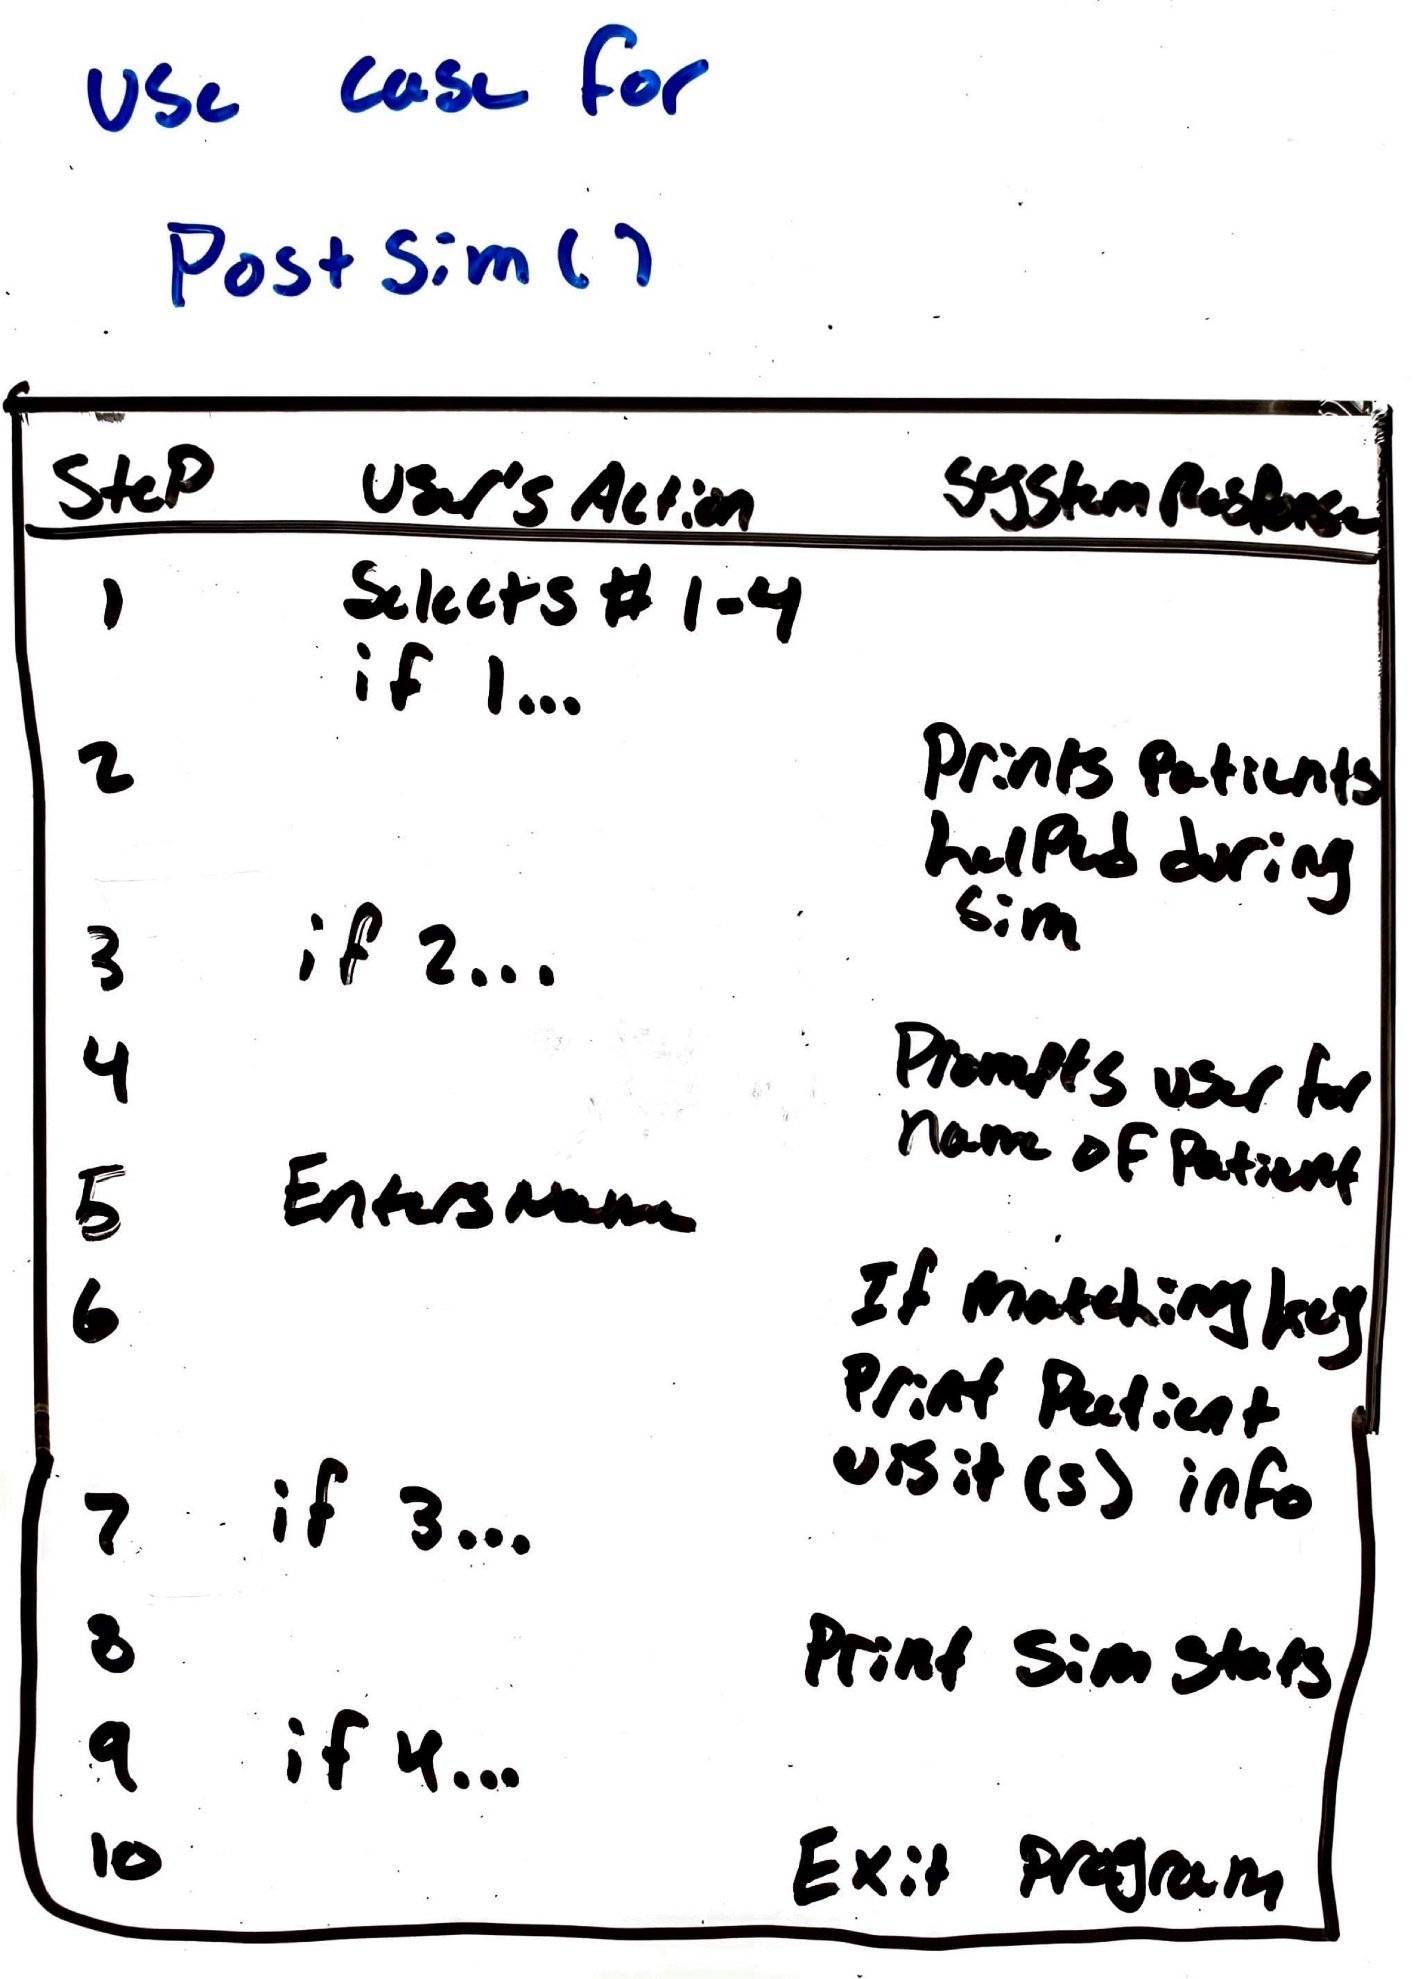 Use case for
PostSim()
Step User's Action System Response
1 Selects # 1-4
if 1...
2 Prints Patients
helped during
sim
3 if 2...
4 Prompts user for
name of Patient
5 Enters Name
6 If matching key
Print Patient
visit(s) info
7 if 3...
8 Print Sim stats
9 if 4...
10 Exit Program